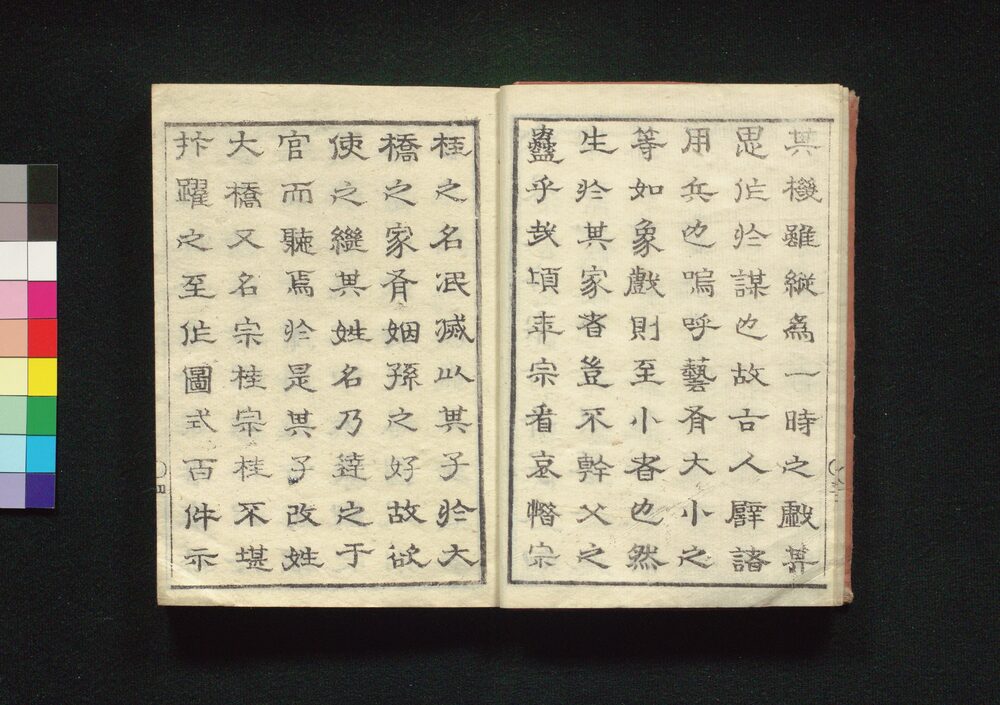 其機雖縱為一時之戲其
思作於謀也故古人譬諸
用兵也嗚呼藝有大小之
等如象戲則至小者也然
生於其家者豈不幹父之
蠱乎哉頃年宗看哀憯宗
桂之名泯滅以其子於大
橋之家有姻孫之好故欲
使之繼其姓名乃達之于
官而聽焉於是其子改姓
大橋又名宗桂宗桂不堪
抃躍之至作圖式百件示
四